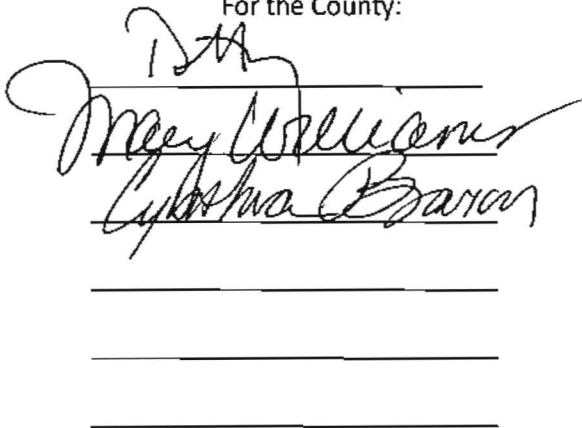 For the County:
Williams
Cynthia Baron